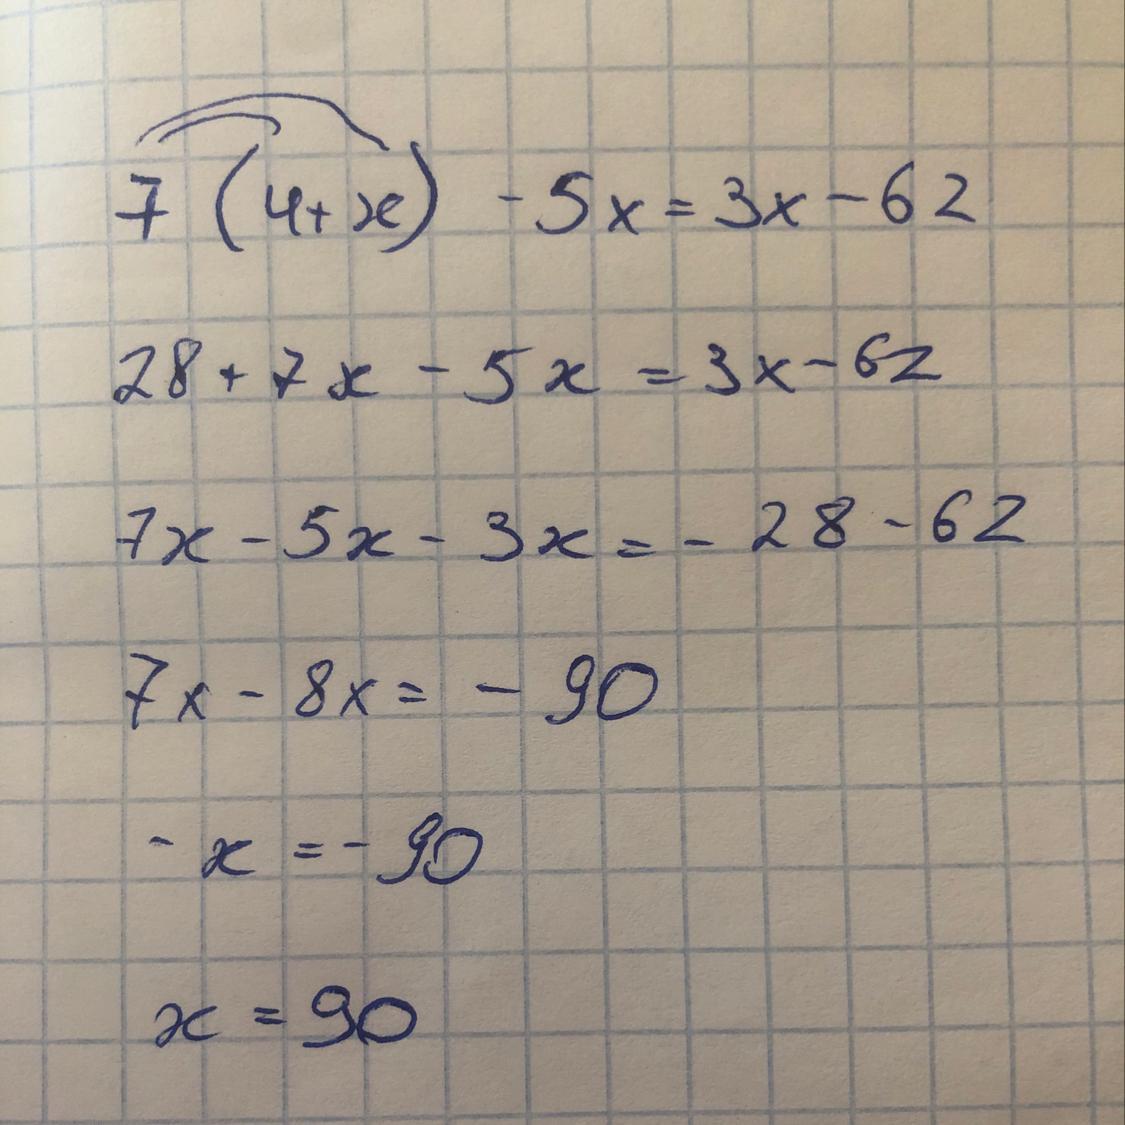 7 (4+x) - 5x = 3x - 62
28 + 7x - 5x = 3x - 62
7x - 5x - 3x = - 28 - 62
7x - 8x = - 90
- x = - 90
x = 90